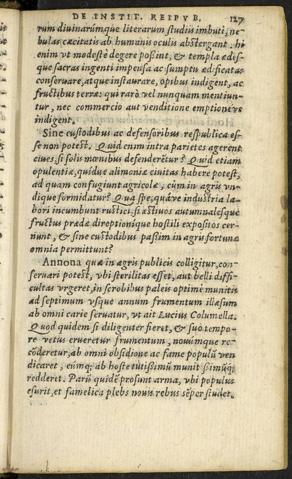 DE INSTIT. REIPVB. 127
rum diuinarúmque literarum studiis imbuti, ne-
bulas cæcitatis ab humanis oculis abstergant. hi
enim vt modestè degere possint, & templa ædes-
que sacras ingenti impensa ac sumptu ædificatas
conseruare, atque instaurare, opibus indigent, ac
fructibus terræ: qui rarò vel nunquam mentiun-
tur, nec commercio aut venditione emptionéve
indigent.
Sine custodibus ac defensoribus respublica es-
se non potest. Quid enim intra parietes agerent
ciues, si solis mœnibus defenderétur? Quid etiam
opulentiæ, quidue alimoniæ ciuitas habere potest,
ad quam confugiunt agricolæ, cùm in agris vn-
dique formidatur? Qua spe, quáve industria la-
bori incumbunt rustici, si æstiuos autumnalésque
fructus prædæ direptionique hostili expositos cer-
nunt, & sine custodibus passim in agris fortunæ
omnia permittunt?
Annona quæ in agris publicis colligitur, con-
seruari potest, vbi sterilitas esset, aut belli diffi-
cultas vrgeret, in scrobibus paleis optimè munitis
ad septimum vsque annum frumentum illæsum
ab omni carie seruatur, vt ait Lucius Columella.
Quod quidem si diligenter fieret, & suo tempo-
re vetus erueretur frumentum, nouúmque re-
códeretur, ab omni obsidione ac fame populũ ven
dicaret, eúmq; ab hoste tutissimũ munitissimúq;
redderet. Parũ quidẽ prosunt arma, vbi populus
esurit, et famelica plebs nouis rebus sẽper studet.